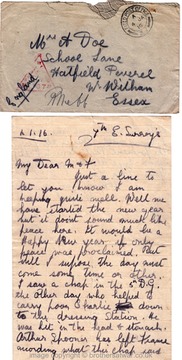 Mrs A Doe
School Lane
Hatfield Peverel
Nr Witham
Essex
England
1.1.16. 7th E. Surrey's
My Dear M & F
Just a line to
let you know I am
keeping quite well. Well we
have started the new year
but it dont sound much like
peace here. It would be a
Happy New year if only
peace was proclaimed. But
well I suppose the day must
come some time or other.
I saw a chap in the 5th D.G.
the other day who helped to
carry poor Charlie Smith down
to the dressing Station. He
was hit in the head & stomach.
Arthur Spooner has left
wording what this chap said